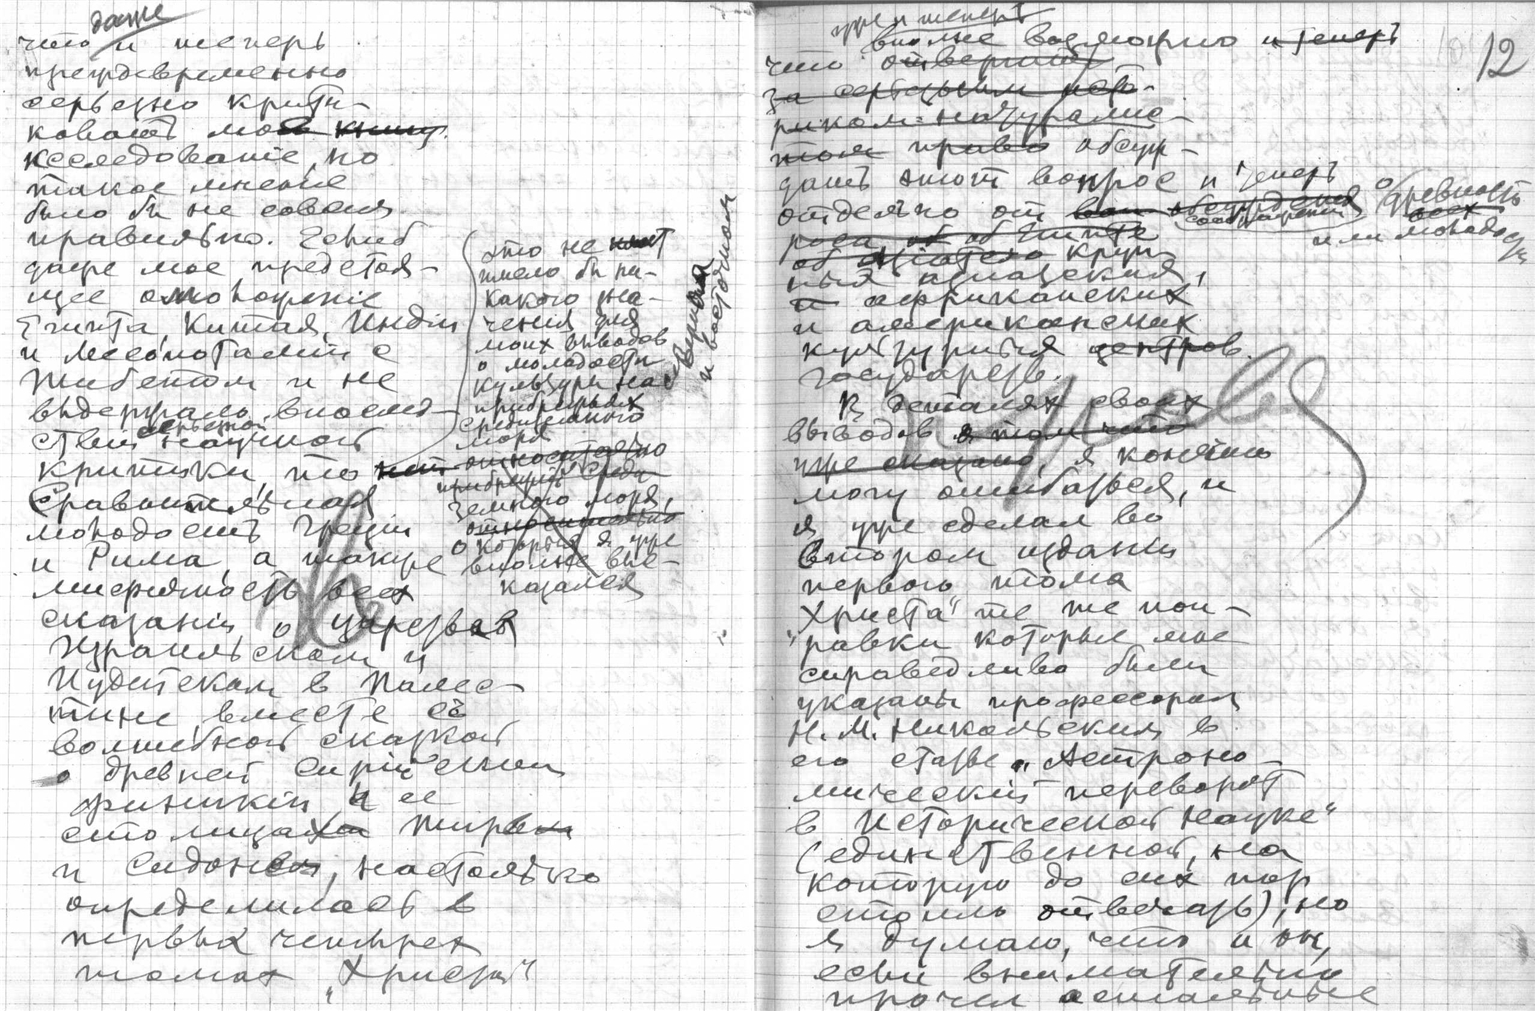 даже
что и теперь
преждевременно
серьезно крити-
ковать мое книгу
исследованіе, но
такое мненіе
было бы не совсем
правильно. Если б
даже мое предстоя-
щее отоженіе
Египта, Китая, Индіи
и Месопотаміи с
Тибетом и не
выдержало впослед-
ствіи серьезной научной
критики, то
сравнительная
молодость Греціи
и Рима, а также
мифичность всех
сказаній о царствах
Израильском и
Иудейском в Палес-
тине вместе с
волшебной сказкой
о древней Сиріи
Финикіи и ее
столицах Тире
и Сидоне, настолько
определилась в
первых четырех
томах „Христа"
это не
имело бы ни-
какого зна-
чения для
моих выводов
о молодости
культуры на
прибрежьях
Средиземного
моря
относительно
прибрежий Среди-
земного моря,
относительно
о которых я уже
вполне выс-
казался
и восточном
12
уже и теперь
вполне возможно и теперь
что отвергать
за серьезным исто-
риком-натуралис-
том право обсуж-
дать этот вопрос и теперь
отдельно от обсуждения о древность
всех
или молодо
об Египте
круп-
ных азиатских,
и африканских
и американских
культурных центров.
государств.
В деталях своих
выводов в том что
уже сказано, я конечно
могу ошибаться, и
я уже сделал во
втором изданіи
первого тома
„Христа" те же поп-
равки которые мне
справедливо были
указаны профессором
Н. М. Никольским в
его статье „Астроно-
мическій переворот
в исторической науке"
(единственной, на
которую до сих пор
стоило отвечать), но
я думаю, что и он,
если внимательно
прочел остальные